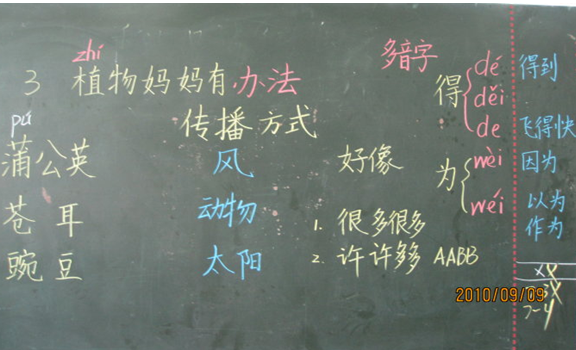 zhí
多音字
3 植物妈妈有办法
得 dé 得到
děi
de 飞得快
pú
传播方式
蒲公英 风 好像
为 wèi 因为
wéi 以为
作为
苍耳 动物
1. 很多很多
豌豆 太阳
2. 许许多多 AABB
2010/09/09